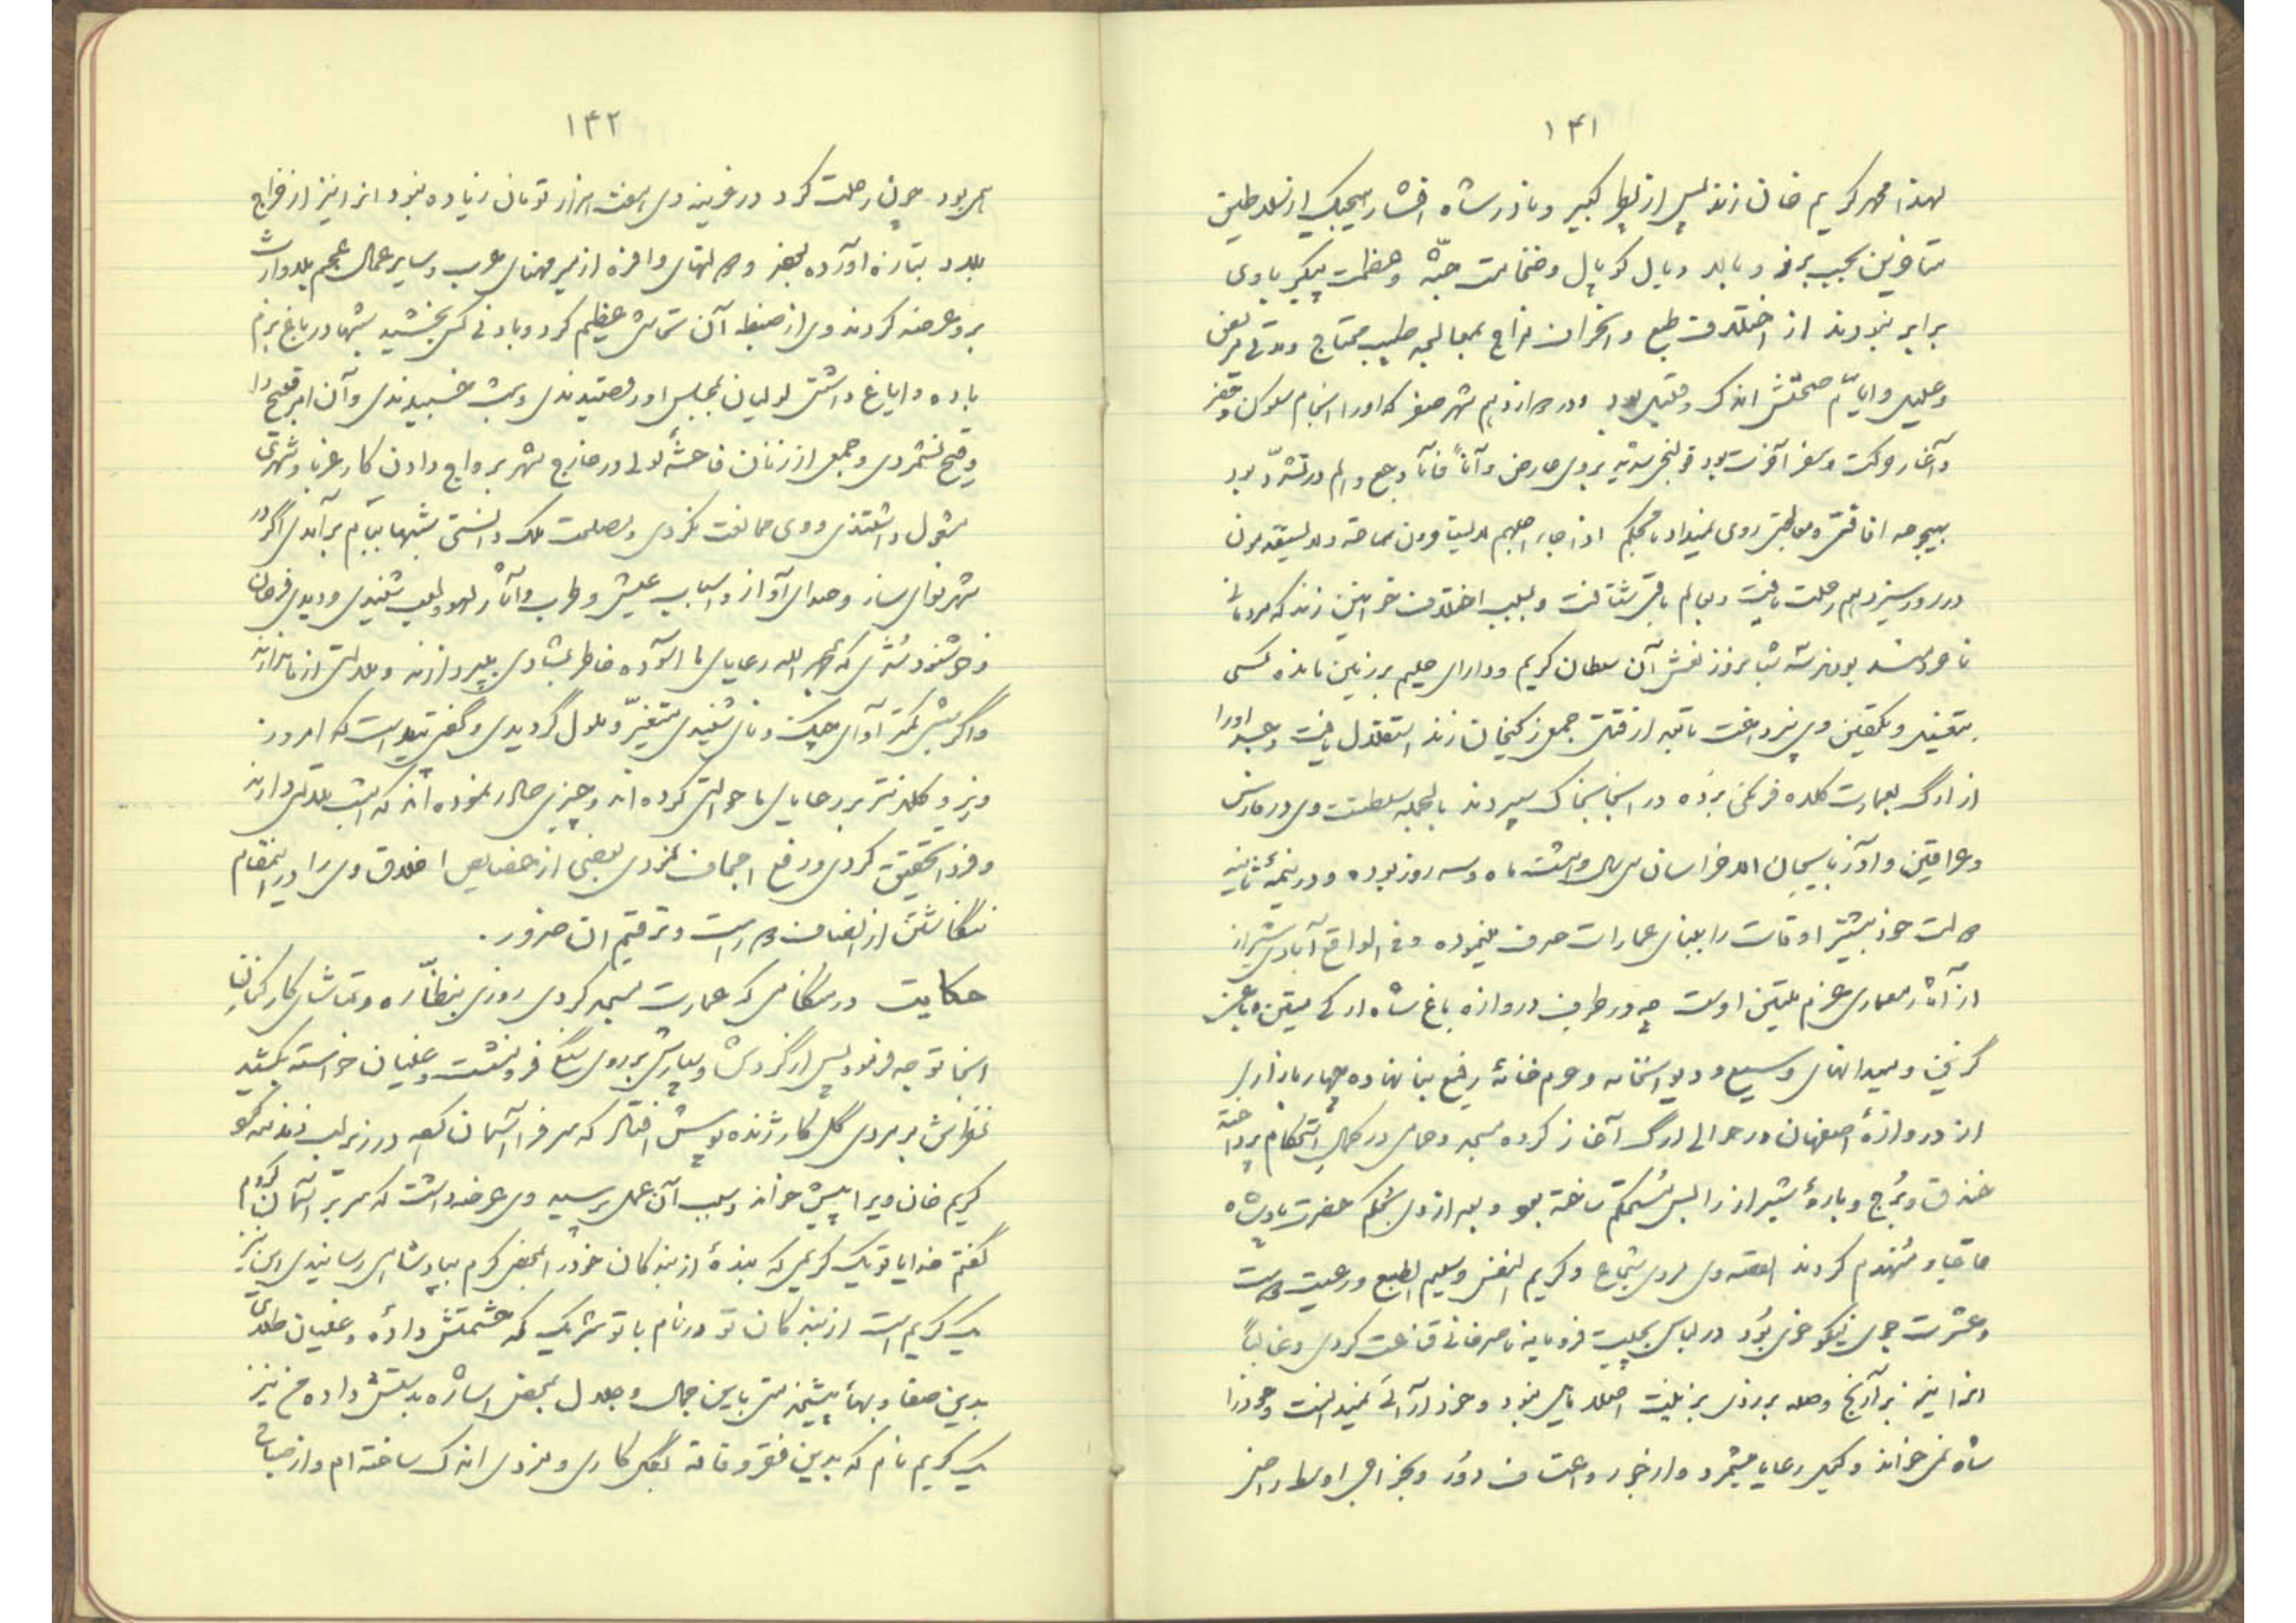 ۱۴۱
لهذا محمد کریم خان زند پس از کبیر و نادر شاه افشار هیچیک از سلاطین
متأخرین بحسب برز و بالا و یال کوپال و ضخامت جثّه و عظمت پیکر با وی
برابر نبودند از اختلاف طبع و انحراف مزاج بمعالجه طبیب محتاج و مدتی مریض
و علیل و ایّام صحتش اندک و قلیل بود و در دوازدهم شهر صفر که او را انجام سکون و حضر
و آغاز حرکت و سفر آخرت بود قولنجی بر وی عارض و آناً فآناً وجع و الم در تشدّد بود
بهیچوجه افاقتی و روی نمیداد بحکم اذا جاء اجلهم لا یستأخرون ساعة ولا یستقدمون
در روز سیزدهم رحلت یافت و بعالم باقی شتافت و بسبب اختلاف خوانین زند که مردمانی
ناخردمند بودند سه شبانروز نعش آن سلطان کریم و دارای حلیم بر زمین مانده کسی
بتغسیل و تکفین وی نپرداخت تا بعد از قتل جمعی زکیخان زند استقلال یافت و جسد او را
از ارگ بعمارت کلاه فرنگی برده در آنجا بخاک سپردند بالجمله سلطنت وی در فارس
و عراقین و آذربایجان الا خراسان سی سال و هشت ماه و سه روز بوده و در نیمهٔ ثانیه
دولت خود بیشتر اوقات را ببنای عمارات صرف مینموده و فی الواقع آبادی شیراز
از آثار معماری عزم متین اوست چه در طرف دروازه باغ شاه ارکی متین و باغی
گزین و میدانهای وسیع و دیوانخانه و حرم خانهٔ رفیع بنا نهاده چهار بازاری
از دروازهٔ اصفهان در حوالی ارگ آغاز کرده مسجد و حمامی در کمال استحکام پرداخته
خندق و بُرج و بارهٔ شیراز را بس مُستحکم ساخته بود و بعد از وی بحکم حضرت پادشاه
منهدم کردند القصه وی مردی شجاع و کریم النفس و سلیم الطبع و رعیت دوست
و عشرت جوی نیکو خوی بود در لباس بچیت فرومایه ناصرخانی قناعت کردی و غالباً
آنرا نیز بر آرنج وصله بر زدی بزینت اصلا مایل نبود و خودآرائی نمیدانست و خود را
شاه نمی خواند وکیل رعایا میشمرد و از جور و اعتساف دور و بخیر الامور اوسطها راضی
۱۴۲
همی بود چون رحلت کرد در خزینه وی هفت هزار تومان زیاده نبود آنرا نیز از خراج
بلاد بتازه آورده بودند و دولتهای وافره از میر مهنای عرب و سایر عمال عجم بلاوارث
بر او عرضه کردند وی از ضبط آن تحاشی عظیم کرد و بادنی کس بخشید شبها در باغ بزم
باده و ایاغ داشتی لولیان بمجلس او رقصیدندی و مست خسبیدندی و آن امر قبیح را
وقیح نشمردی و جمعی از زنان فاحشهٔ لولی در خارج شهر برواج دادن کار غربا و شهری
مشغول داشتندی و وی ممانعت نکردی و مصلحت ملک دانستی شبها ببام برآمدی اگر در
شهر نوای ساز و صدای آواز و اسباب عیش و طرب و آثار لهو و لعب شنیدی و دیدی فرحان
و خوشنود شدی که بحمد الله رعایای ما آسوده خاطر بشادی میپردازند و ملالتی از ما ندارند
و اگر شبی کمتر آوای چنگ و نای شنیدی متغیّر و ملول گردیدی و گفتی پیداست که امروز
وزیر و کلانتر بر رعایای ما حوالتی کرده اند و چیزی صادر نموده اند که امشب ملالتی دارند
و فردا تحقیق کردی و رفع اجحاف نمودی بعضی از خصایص اخلاق وی را در این مقام
نگاشتن از انصاف دور است و ترقیم آن ضرور.
حکایت در هنگامی که عمارت مسجد کردی روزی بنظّاره و تماشای کارکنان
آنجا توجه فرمود پس از گردش بسیاری بر روی سنگی فرو نشست و غلیان خواسته بکشید
نظرش بر مردی گل کار ژنده پوش افتاد که سر فرا آسمان کرده در زیر لب زمزمه گو
کریم خان ویرا پیش خواند و سبب آن عمل پرسید وی عرضه داشت که سر بر آسمان کردم
گفتم خدایا تو یک کریمی که بندهٔ از بندکان خود را بمحض کرم بپادشاهی رسانیدی این نیز
یک کریم است از بندکان تو در نام با تو شریک که حشمتش داده و غلیان طلای
بدین صفا و بها پیشخدمتی باین جمال و جلال بمحض اشاره بدستش داده من نیز
یک کریم نام که بدین فقر و فاقه بگل کاری و مزدی اندک ساخته ام و از حیات